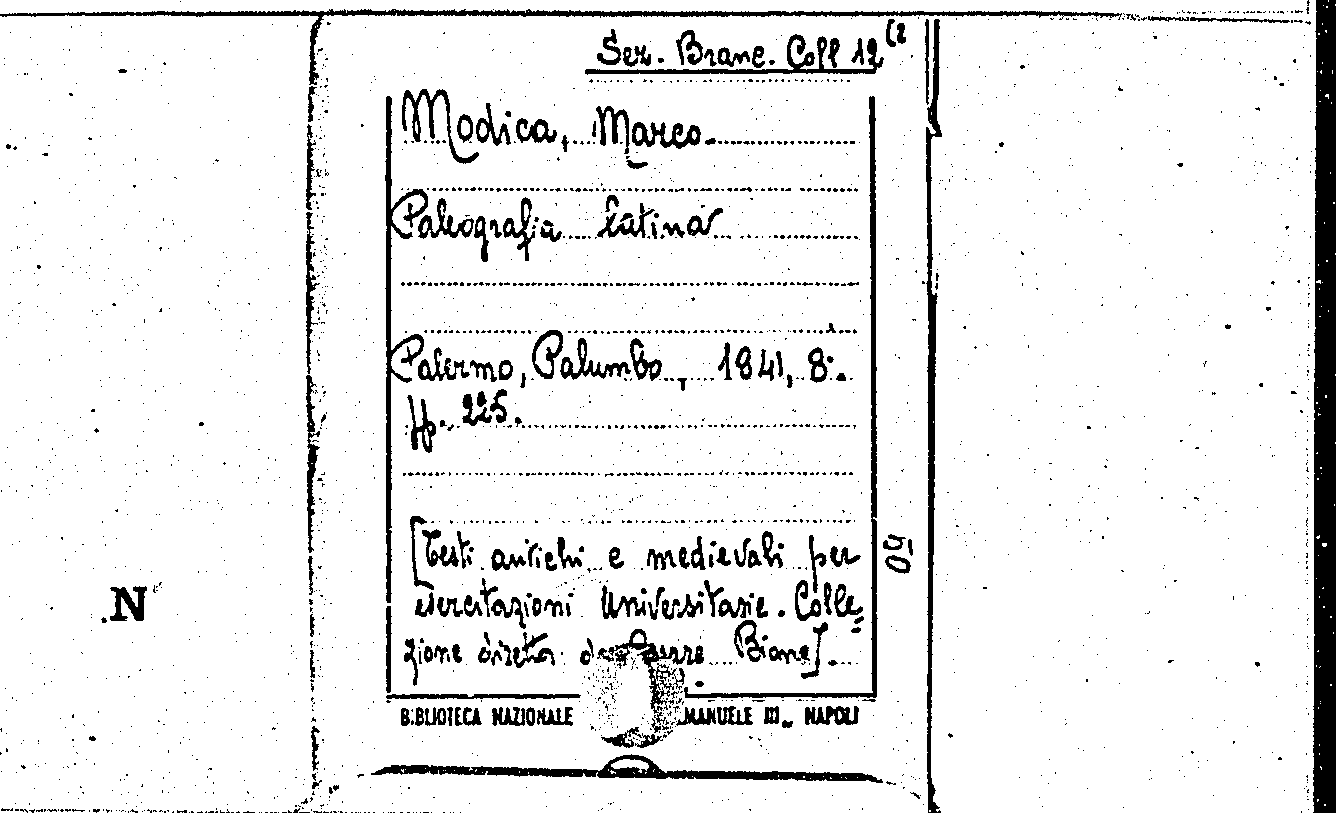 Sez. Branc. Coll 12 (2
Modica, Marco.
Paleografia latina
Palermo, Palumbo, 1941, 8°.
pp. 225.
[Testi antichi e medievali per
esercitazioni Universitarie. Colle=
zione diretta da Biane].
04
N
BIBLIOTECA NAZIONALE MANUELE III_ NAPOLI